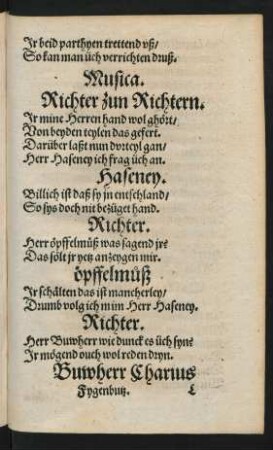 Ir beid parthyen trettend vß/
So kan man üch verrichten druß.
Musica.
Richter zun Richtern.
Ir mine Herren hand wol ghört/
Von beyden teylen das gefert.
Darüber laßt nun dvrteyl gan/
Herr Haseney ich frag üch an.
Haseney.
Billich ist daß sy jn entschland/
So sys doch nit bezüget hand.
Richter.
Herr öpffelmůß was sagend jr?
Das sölt jr yetz anzeygen mir.
öpffelmůß
Ir schälten das ist mancherley/
Drumb volg ich mim Herr Haseney.
Richter.
Herr Buwherr wie dunckes üch syn?
Ir mögend ouch wol reden dryn.
Buwherr Charius
Fygenbutz.